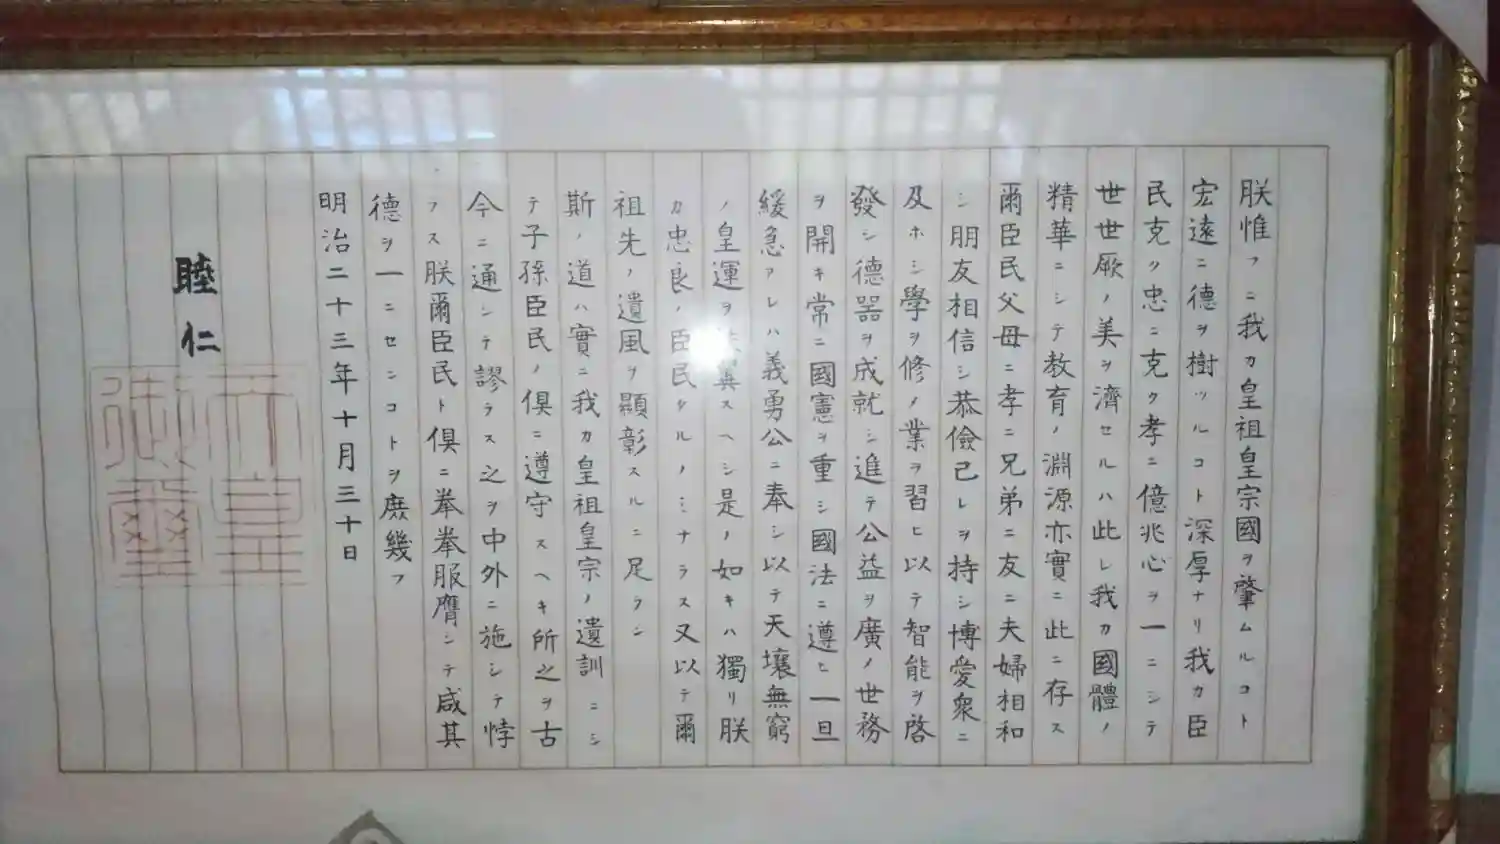 朕惟フニ我カ皇祖皇宗國ヲ肇ムルコト
宏遠ニ德ヲ樹ツルコト深厚ナリ我カ臣
民克ク忠ニ克ク孝ニ億兆心ヲ一ニシテ
世世厥ノ美ヲ濟セルハ此レ我カ國體ノ
精華ニシテ教育ノ淵源亦實ニ此ニ存ス
爾臣民父母ニ孝ニ兄弟ニ友ニ夫婦相和
シ朋友相信シ恭儉己レヲ持シ博愛衆ニ
及ホシ學ヲ修メ業ヲ習ヒ以テ智能ヲ啓
發シ德器ヲ成就シ進テ公益ヲ廣メ世務
ヲ開キ常ニ國憲ヲ重シ國法ニ遵ヒ一旦
緩急アレハ義勇公ニ奉シ以テ天壤無窮
ノ皇運ヲ翼スヘシ是ノ如キハ獨リ朕
カ忠良ノ臣民タルノミナラス又以テ爾
祖先ノ遺風ヲ顯彰スルニ足ラン
斯ノ道ハ實ニ我カ皇祖皇宗ノ遺訓ニシ
テ子孫臣民ノ俱ニ遵守スヘキ所之ヲ古
今ニ通シテ謬ラス之ヲ中外ニ施シテ悖
ラス朕爾臣民ト俱ニ拳拳服膺シテ咸其
德ヲ一ニセンコトヲ庶幾フ
明治二十三年十月三十日
睦仁
天皇
御璽